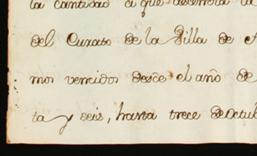 la cantidad a que
del Curato de la Villa de
mos vencidos desde el año de
ta y seis, hasta trece de Octub